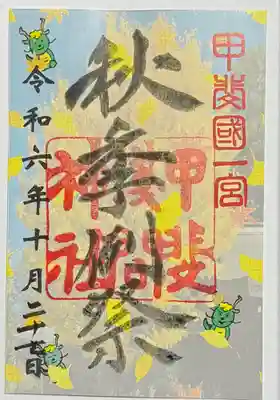 甲斐國一宮
秋季例祭
甲斐
神社
令和六年十月二十七日